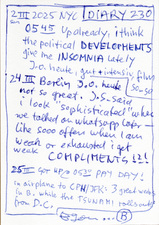 2 III 2025 NYC DIARY 230
0545 Up already, i think
the political DEVELOPMENTS
give INSOMNIA lately
J.O. heute, gut + intensiv film
24 III Boring J.O. heute so-so
not so great. J.S. said
i look "sophisticated" when
we talked on whatsapp later -
like sooo often when I am
weak or exhausted i get
COMPLIMENTS !!!
25 III Got up 0525 PAY DAY!
in airplane to CPH/JFK: 3 great weeks
in B. while the TSUNAMI rolls out
from D.C.
B